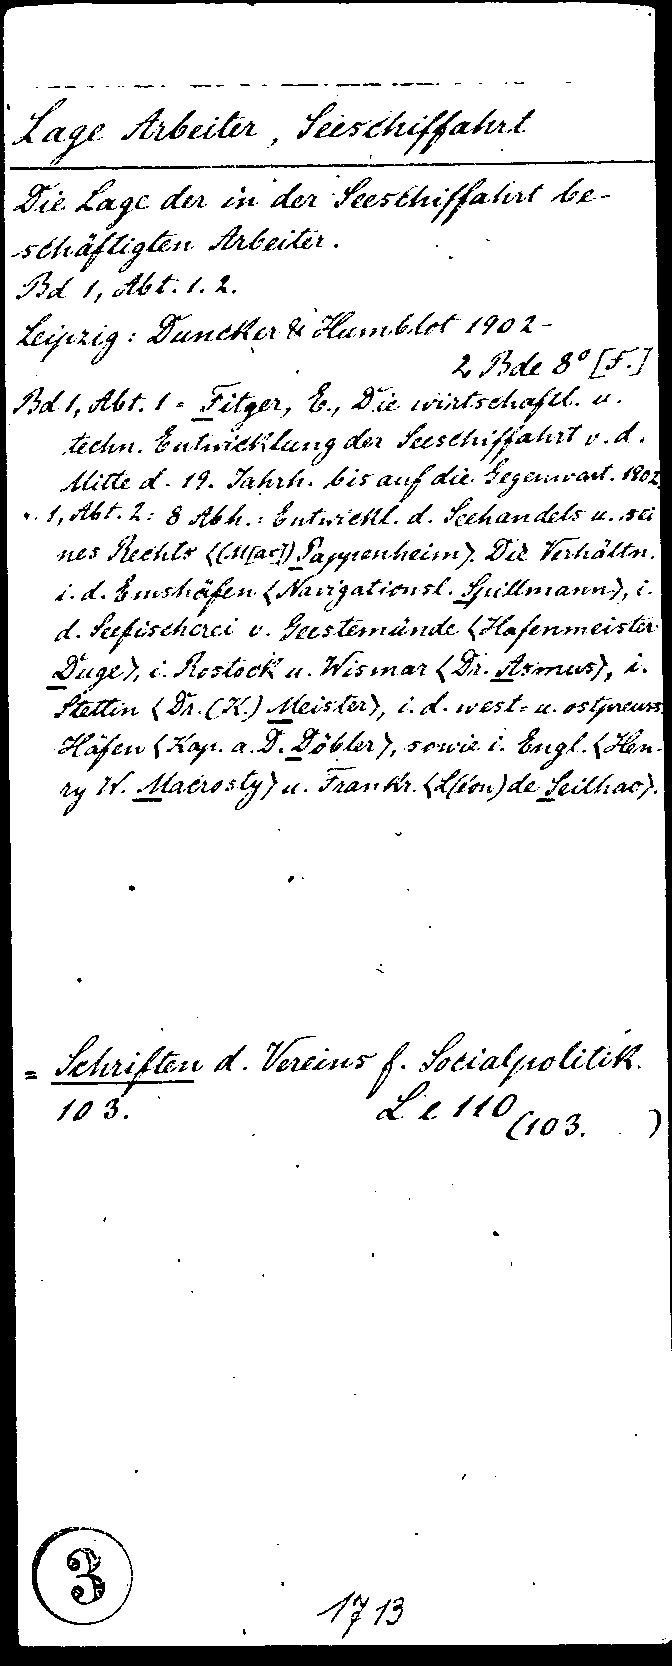 Lage Arbeiter, Seeschiffahrt
Die Lage der in der Seeschiffahrt be-
schäftigten Arbeiter.
Bd 1, Abt. 1. 2.
Leipzig: Duncker & Humblot 1902-
2 Bde 8° [F.]
Bd 1, Abt. 1 = Fitger, E., Die wirtschaftl. u.
techn. Entwicklung der Seeschiffahrt v. d.
Mitte d. 19. Jahrh. bis auf die Gegenwart. 1902
". 1, Abt. 2: 8 Abh.: Entwickl. d. Seehandels u. sei
nes Rechts <(M[ax]) Pappenheim>. Die Verhältn.
i. d. Emshäfen <Navigationsl. Spillmann>, i.
d. Seefischerei v. Geestemünde <Hafenmeister
Duge>, i. Rostock u. Wismar <Dr. Asmus>, i.
Stettin <Dr. (K.) Meister>, i. d. west= u. ostpreuss.
Häfen <Kap. a. D. Döbler>, sowie i. Engl. <Hen-
ry W. Macrosty> u. Frankr. <L(éon) de Seilhac>.
= Schriften d. Vereins f. Socialpolitik.
103. L e 110 (103. )
3
1713